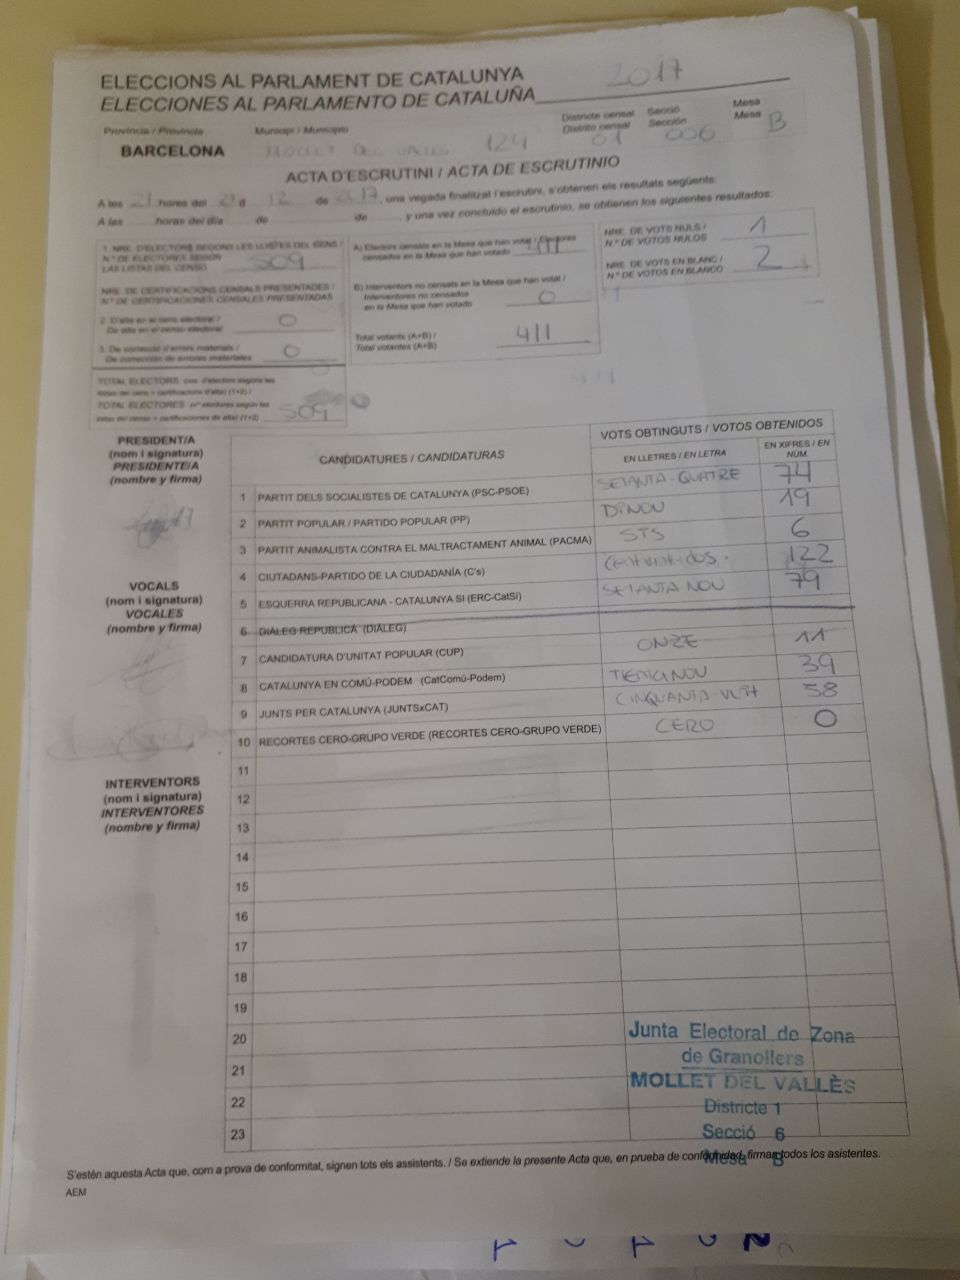 ELECCIONS AL PARLAMENT DE CATALUNYA
ELECCIONES AL PARLAMENTO DE CATALUÑA 2017
Província / Provincia Municipi / Municipio Districte censal Secció Mesa
Distrito censal Sección Mesa
BARCELONA MOLLET DEL VALLÈS 124 01 006 B
ACTA D'ESCRUTINI / ACTA DE ESCRUTINIO
A les 21 hores del 21 d 12 de 2017, una vegada finalitzat l'escrutini, s'obtenen els resultats següents:
A las horas del día de de , y una vez concluido el escrutinio, se obtienen los siguientes resultados:
1. NRE. D'ELECTORS SEGONS LES LLISTES DEL CENS /
Nº DE ELECTORES SEGÚN
LAS LISTAS DEL CENSO 509
NRE. DE CERTIFICACIONS CENSALS PRESENTADES /
Nº DE CERTIFICACIONES CENSALES PRESENTADAS
2. D'alta en el cens electoral /
De alta en el censo electoral 0
3. De correcció d'errors materials /
De corrección de errores materiales 0
TOTAL ELECTORS (nre. d'electors segons les
llistes del cens + certificacions d'alta) (1+2) /
TOTAL ELECTORES (nº electores según las
listas del censo + certificaciones de alta) (1+2) 509
A) Electors censats en la Mesa que han votat / Electores
censados en la Mesa que han votado 411
B) Interventors no censats en la Mesa que han votat /
Interventores no censados
en la Mesa que han votado 0
Total votants (A+B) /
Total votantes (A+B) 411
NRE. DE VOTS NULS /
N.º DE VOTOS NULOS 1
NRE. DE VOTS EN BLANC /
N.º DE VOTOS EN BLANCO 2
PRESIDENT/A
(nom i signatura)
PRESIDENTE/A
(nombre y firma)
VOCALS
(nom i signatura)
VOCALES
(nombre y firma)
INTERVENTORS
(nom i signatura)
INTERVENTORES
(nombre y firma)
CANDIDATURES / CANDIDATURAS VOTS OBTINGUTS / VOTOS OBTENIDOS
EN LLETRES / EN LETRA EN XIFRES / EN NÚM.
1 PARTIT DELS SOCIALISTES DE CATALUNYA (PSC-PSOE) SETANTA-QUATRE 74
2 PARTIT POPULAR / PARTIDO POPULAR (PP) DINOU 19
3 PARTIT ANIMALISTA CONTRA EL MALTRACTAMENT ANIMAL (PACMA) SIS 6
4 CIUTADANS-PARTIDO DE LA CIUDADANÍA (C's) Cent vint-i-dos. 122
5 ESQUERRA REPUBLICANA - CATALUNYA SI (ERC-CatSí) SETANTA NOU 79
6 DIÀLEG REPUBLICÀ (DIÀLEG)
7 CANDIDATURA D'UNITAT POPULAR (CUP) ONZE 11
8 CATALUNYA EN COMÚ-PODEM (CatComú-Podem) 39
9 JUNTS PER CATALUNYA (JUNTSxCAT) CINQUANTA VUIT 58
10 RECORTES CERO-GRUPO VERDE (RECORTES CERO-GRUPO VERDE) CERO 0
11
12
13
14
15
16
17
18
19
20
21
22
23
Junta Electoral de Zona
de Granollers
MOLLET DEL VALLÈS
Districte 1
Secció 6
Mesa B
S'estén aquesta Acta que, com a prova de conformitat, signen tots els assistents. / Se extiende la presente Acta que, en prueba de conformidad, firman todos los asistentes.
AEM